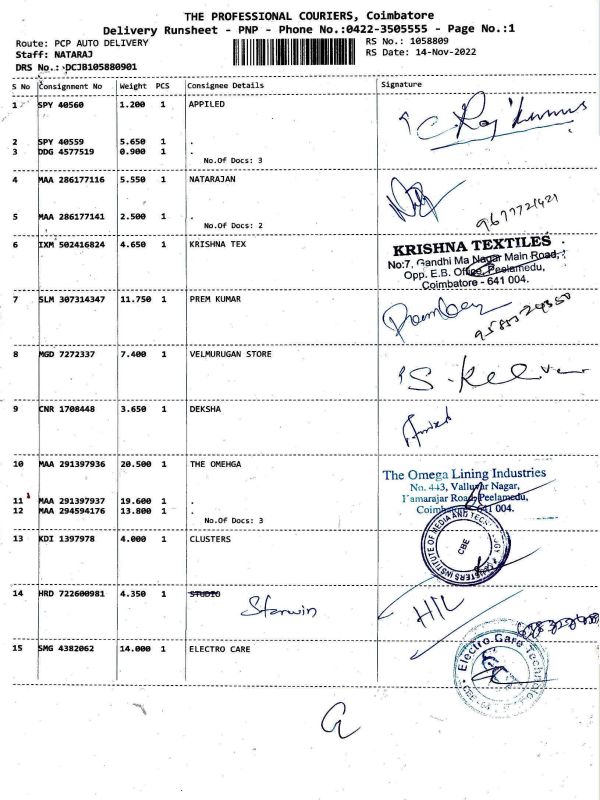 THE PROFESSIONAL COURIERS, Coimbatore
Delivery Runsheet - PNP - Phone No.:0422-3505555 - Page No.:1
Route: PCP AUTO DELIVERY RS No.: 1058809
Staff: NATARAJ RS Date: 14-Nov-2022
DRS No.: DCJB105880901
S No Consignment No Weight PCS Consignee Details Signature
1 SPY 40560 1.200 1 APPILED
2 SPY 40559 5.650 1 .
3 DDG 4577519 0.900 1 .
No.Of Docs: 3
4 MAA 286177116 5.550 1 NATARAJAN
5 MAA 286177141 2.500 1 .
9677721421
No.Of Docs: 2
6 IXM 502416824 4.650 1 KRISHNA TEX
KRISHNA TEXTILES
No:7, Gandhi Ma Nagar Main Road,
Opp. E.B. Office, Peelamedu,
Coimbatore - 641 004.
7 SLM 307314347 11.750 1 PREM KUMAR
8 MGD 7272337 7.400 1 VELMURUGAN STORE
9 CNR 1708448 3.650 1 DEKSHA
10 MAA 291397936 20.500 1 THE OMEHGA
The Omega Lining Industries
No. 443, Valluvar Nagar,
Kamarajar Road, Peelamedu,
Coimbatore - 641 004.
11 MAA 291397937 19.600 1 .
12 MAA 294594176 13.800 1 .
No.Of Docs: 3
13 KDI 1397978 4.000 1 CLUSTERS
CLUSTERS INSTITUTE OF MEDIA AND TECHNOLOGY
CBE
14 HRD 722600981 4.350 1 STUDIO
Starwin
H/L
15 SMG 4382062 14.000 1 ELECTRO CARE
Electro Care